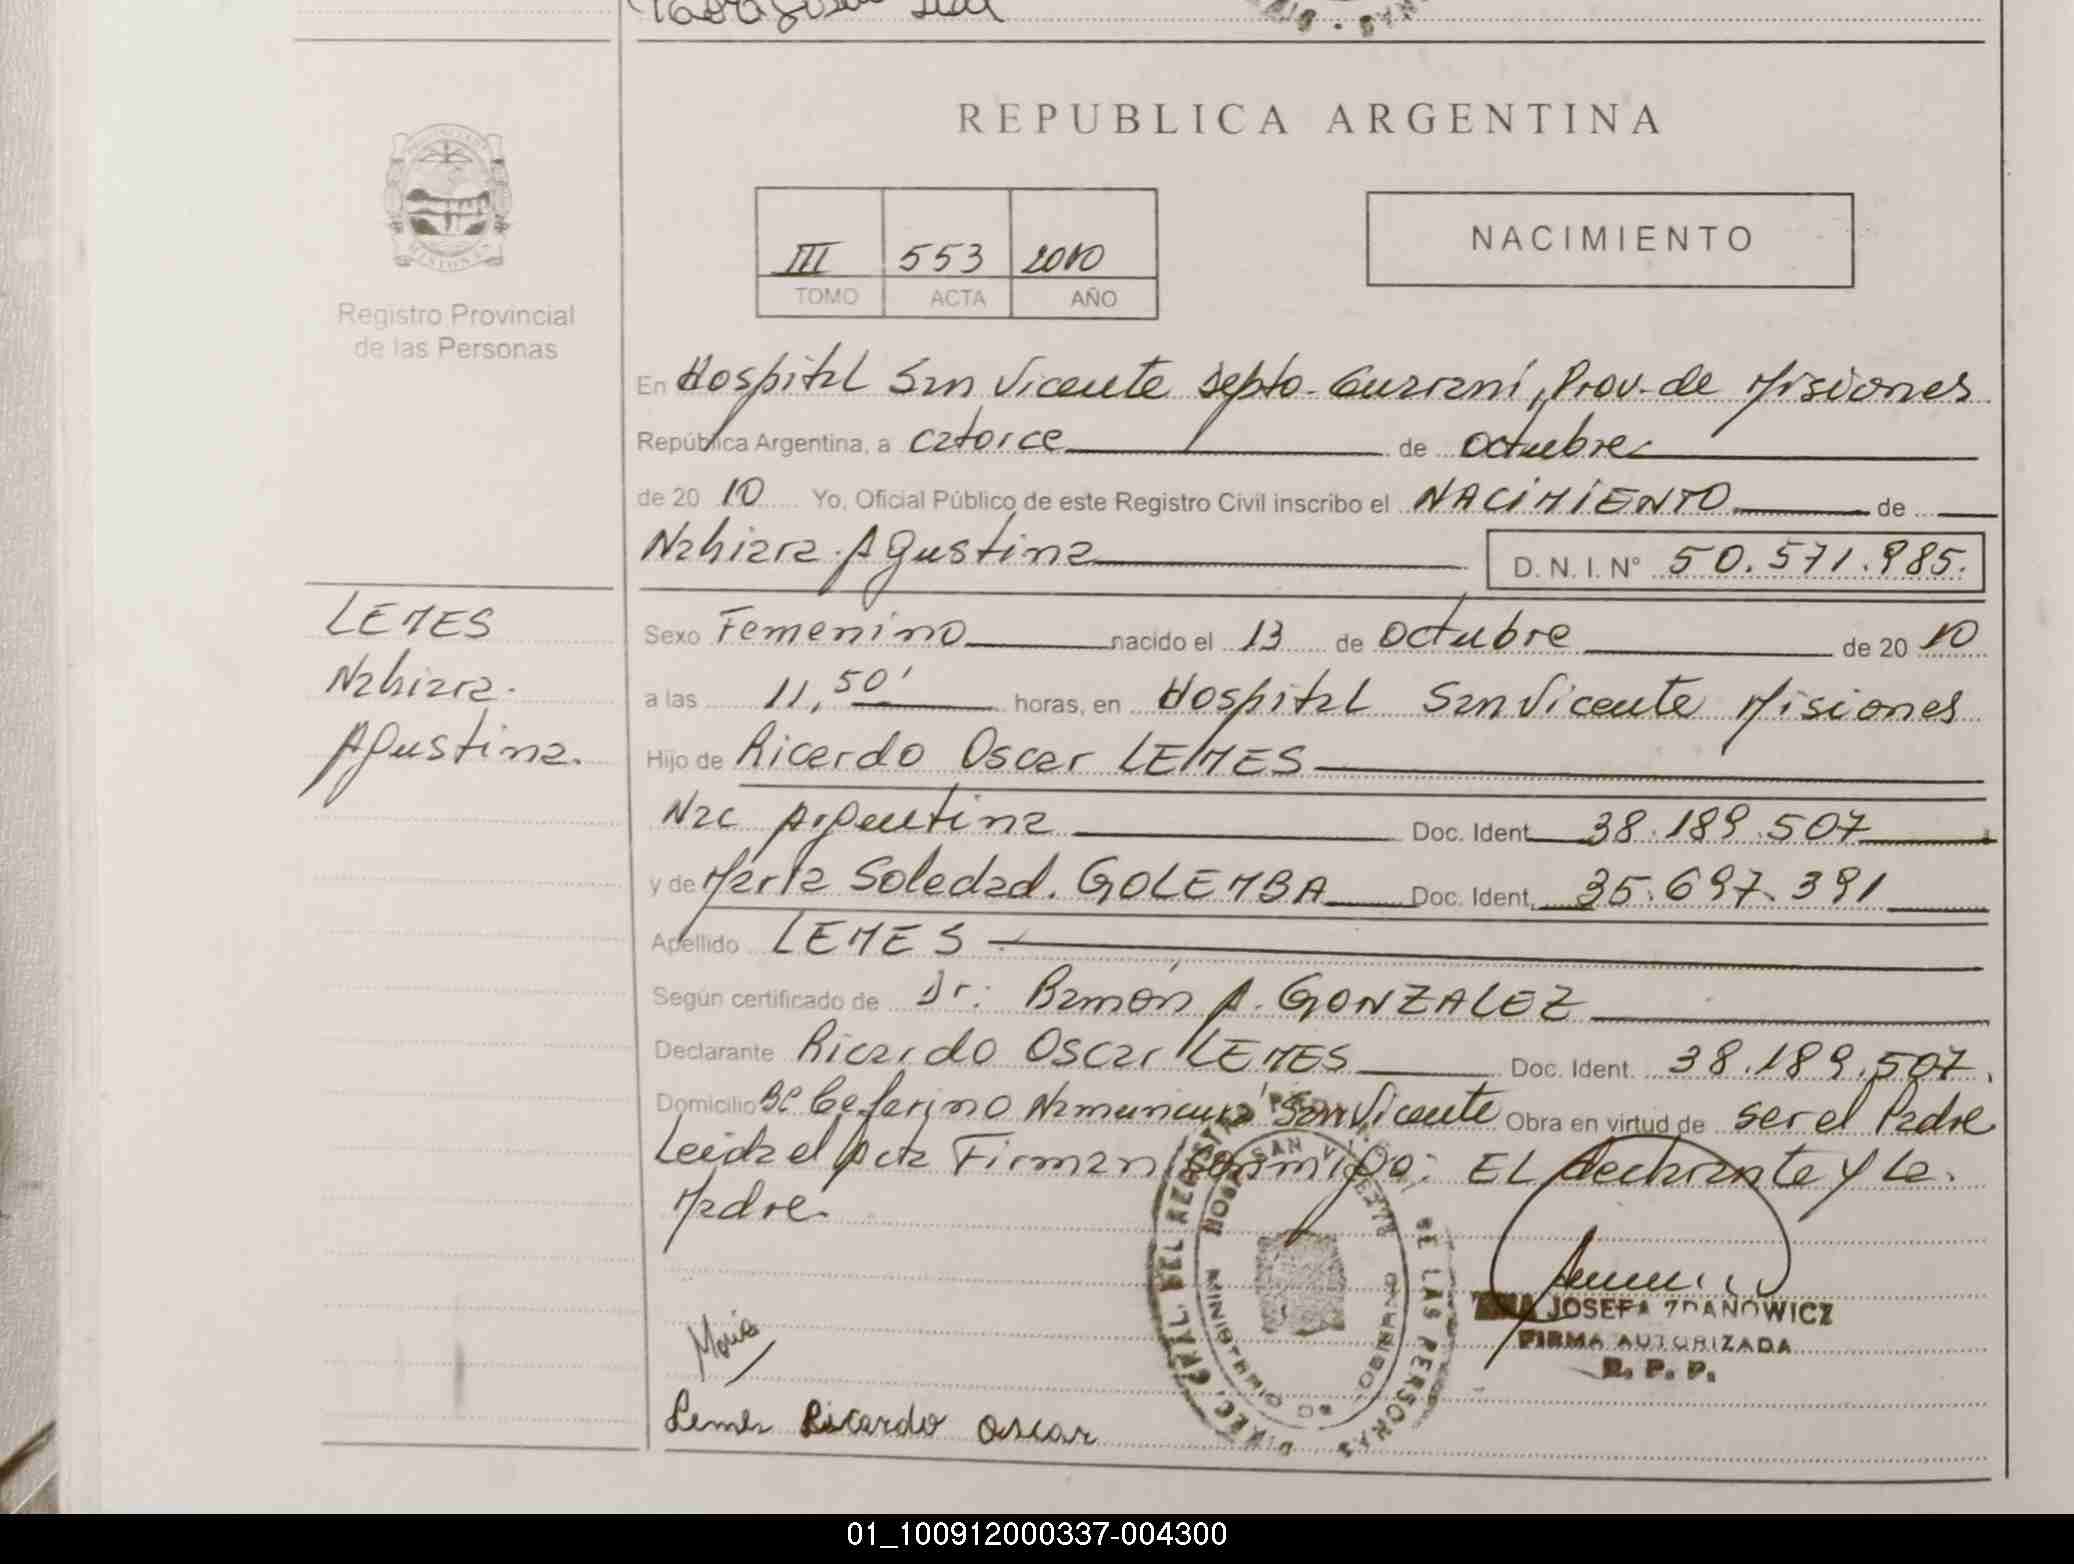 REPUBLICA ARGENTINA
III 553 2010
TOMO ACTA AÑO
NACIMIENTO
Registro Provincial
de las Personas
En Hospital San Vicente Depto. Guaraní, Prov. de Misiones
República Argentina, a catorce de octubre
de 20 10 Yo, Oficial Público de este Registro Civil inscribo el NACIMIENTO de
Nahiara Agustina D. N. I. N° 50.571.985.
LEMES
Nahiara
Agustina.
Sexo Femenino nacido el 13 de octubre de 20 10
a las 11,50' horas, en Hospital San Vicente Misiones
Hijo de Ricardo Oscar LEMES
Nac Argentina Doc. Ident. 38.189.507
y de María Soledad. GOLEMBA Doc. Ident. 35.697.391
Apellido LEMES
Según certificado de Dr: Ramón A. GONZALEZ
Declarante Ricardo Oscar LEMES Doc. Ident. 38.189.507.
Domicilio Bº Ceferino Namuncura San Vicente Obra en virtud de ser el Padre
Leida el Acta Firman conmigo: EL declarante y La
Madre.
DIREC. GRAL. DEL REGISTRO DE LAS PERSONAS
JOSEFA ZDANOWICZ
FIRMA AUTORIZADA
R. P. P.
Maria
Lemes Ricardo Oscar
01_100912000337-004300